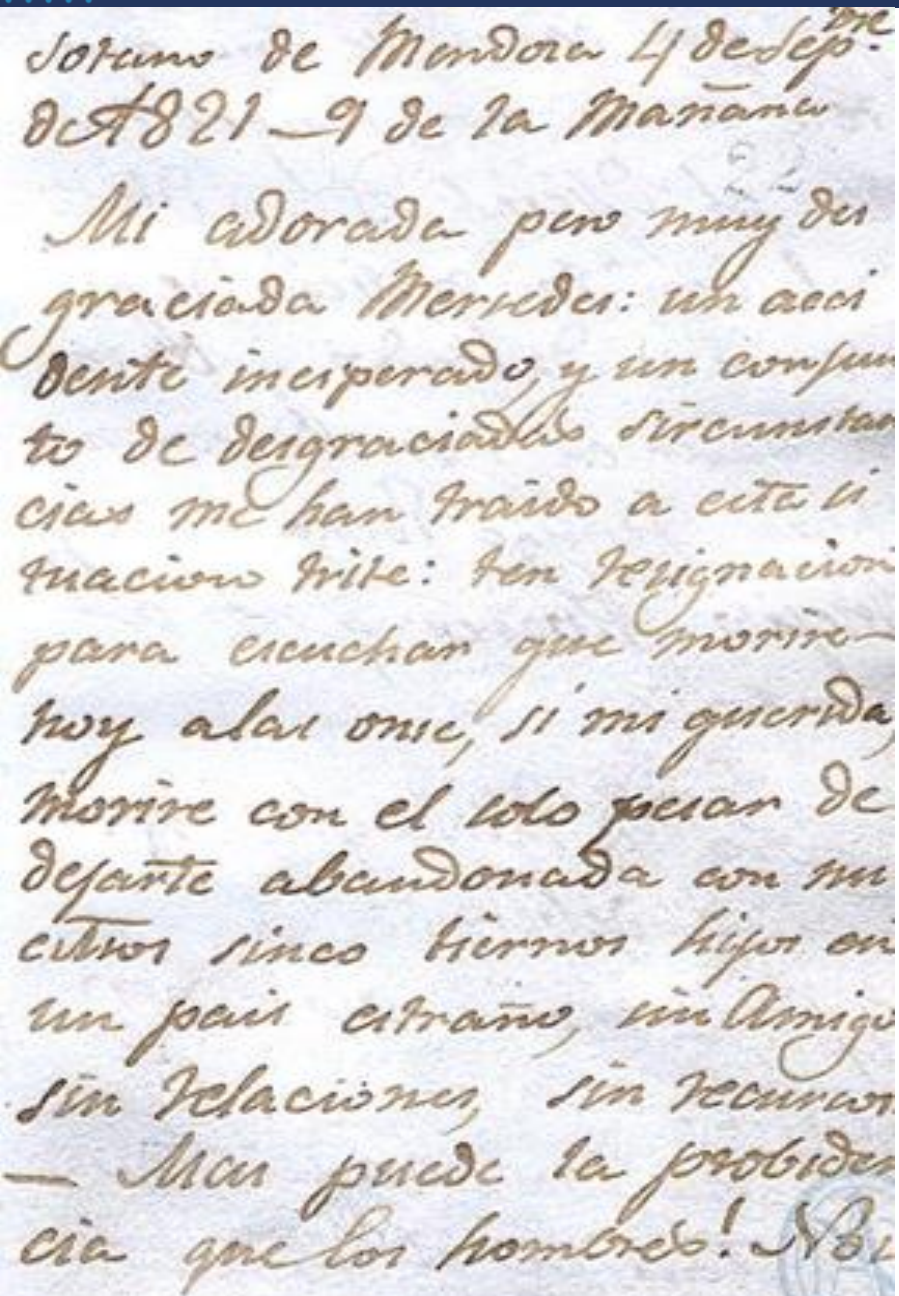 Sotano de Mendosa 4 de Sepbre
de 1821 — 9 de la Mañana
Mi adorada pero muy des
graciada Mersedes: un acci
dente inesperado, y un conjun
to de desgraciadas sircunstan
cias me han traido a esta si
tuacion triste: ten resignacion
para escuchar que morire
hoy a las onse, si mi querida,
morire con el solo pesar de
dejarte abandonada con nu
estros sinco tiernos hijos en
un pais estraño, sin Amigo
sin relaciones, sin recursos
— Mas puede la probiden
cia que los hombres! No